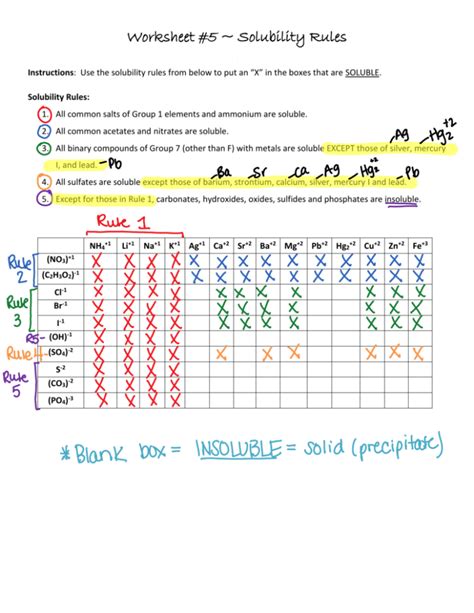 Worksheet #5 ~ Solubility Rules
Instructions: Use the solubility rules from below to put an "X" in the boxes that are SOLUBLE.
Solubility Rules:
1. All common salts of Group 1 elements and ammonium are soluble.
2. All common acetates and nitrates are soluble.
-Ag -Hg₂⁺²
3. All binary compounds of Group 7 (other than F) with metals are soluble EXCEPT those of silver, mercury
I, and lead. -Pb
Ba Sr Ca -Ag -Hg₂⁺² -Pb
4. All sulfates are soluble except those of barium, strontium, calcium, silver, mercury I and lead.
5. Except for those in Rule 1, carbonates, hydroxides, oxides, sulfides and phosphates are insoluble.
Rule 1
NH₄⁺¹ Li⁺¹ Na⁺¹ K⁺¹ Ag⁺¹ Ca⁺² Sr⁺² Ba⁺² Mg⁺² Pb⁺² Hg₂⁺² Cu⁺² Zn⁺² Fe⁺³
Rule 2
(NO₃)⁻¹ X X X X X X X X X X X X X X
(C₂H₃O₂)⁻¹ X X X X X X X X X X X X X X
Rule 3
Cl⁻¹ X X X X X X X X X X X
Br⁻¹ X X X X X X X X X X X
I⁻¹ X X X X X X X X X X X
R5- (OH)⁻¹ X X X X
Rule 4- (SO₄)⁻² X X X X X X X X X X
Rule 5
S⁻² X X X X
(CO₃)⁻² X X X X
(PO₄)⁻³ X X X X
*Blank box = INSOLUBLE = solid (precipitate)